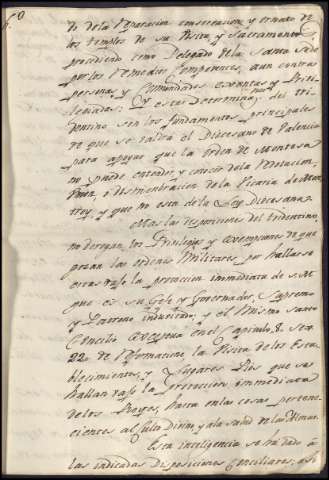 to de la Reparacion conservacion y ornato de
los templos de su Visita y Sacramentos
procediendo como Delegado de la Santa Sede
por los Remedios Competentes, aun contra
personas, y Comunidades exentas y Privi-
legiadas: Y estas Determinaciones del Tri-
dentino son los fundamentos principales
de que se valdrá el Diocesano de Valencia
para apoyar que la orden de Montesa
no puede entender y conocer de la Dotacion,
o desmembracion de la Vicaria de Mon-
roy, y que no esta de la Ley Diocesana.
Mas las disposiciones del tridentino,
no derogan los Privilegios y exempciones de que
gozan las ordenes Militares por hallarse
estas vajo la proteccion immediata de S. M.
que es su Gefe y Governador, Supremo
y Patrono indubitado, y el Mismo Santo
Concilio exceptua en el Capitulo 8. Ses.
22. de Reformacione la Visita de los Esta-
blecimientos, y Lugares Pios que se
hallan vajo la proteccion immediata
de los Reyes, hasta en las cosas pertene-
cientes al Culto Divino, y a la salud de las Almas.
Esta inteligencia se ha dado à
las indicadas Disposiciones Conciliares, asi